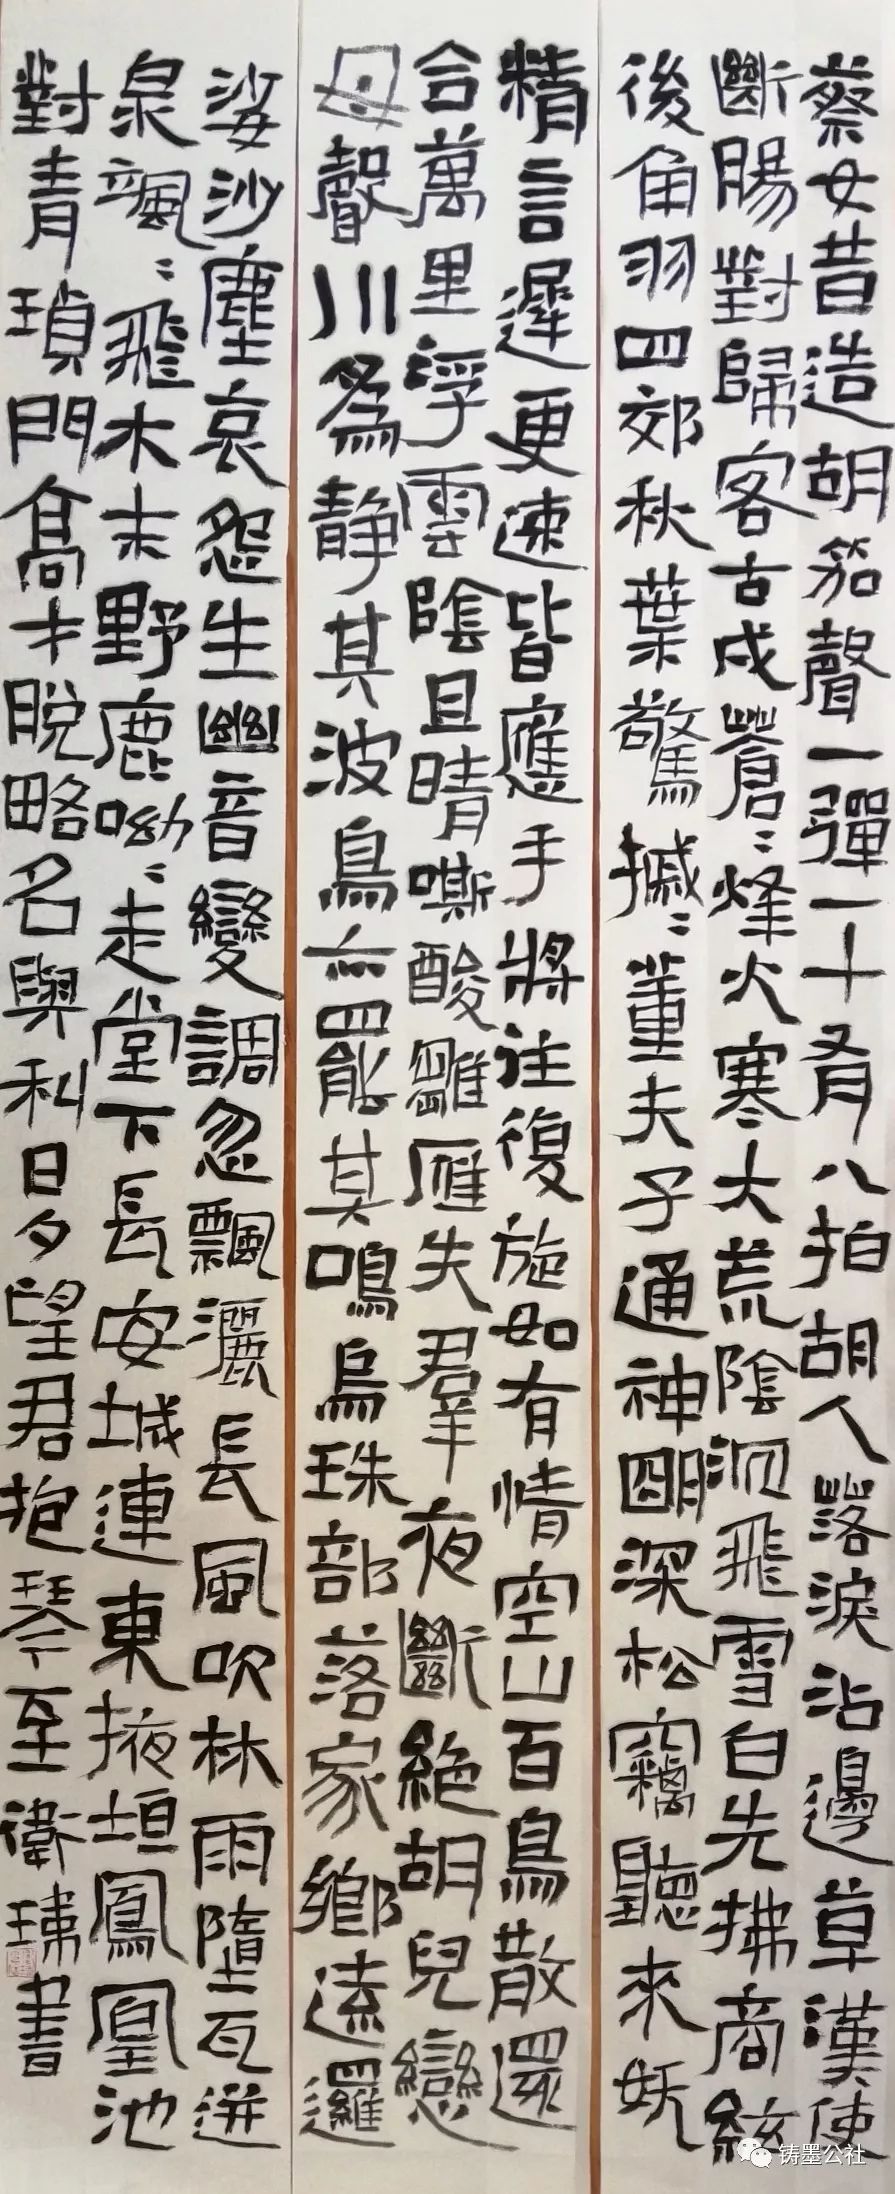 蔡女昔造胡笳聲一彈一十有八拍胡人落淚沾邊草漢使
斷腸對歸客古戍蒼〻烽火寒大荒陰沉飛雪白先拂商絃
後角羽四郊秋葉驚摵〻董夫子通神明深松竊聽來妖
精言遲更速皆應手將往復旋如有情空山百鳥散還
合萬里浮雲陰且晴嘶酸雛雁失羣夜斷絕胡兒戀
母聲川為靜其波鳥亦罷其鳴烏珠部落家鄉遠邏
娑沙塵哀怨生幽音變調忽飄灑長風吹林雨墮瓦迸
泉颯〻飛木末野鹿呦〻走堂下長安城連東掖垣鳳凰池
對青瑣門高才脫略名與利日夕望君抱琴至衛瑋書
铸墨公社